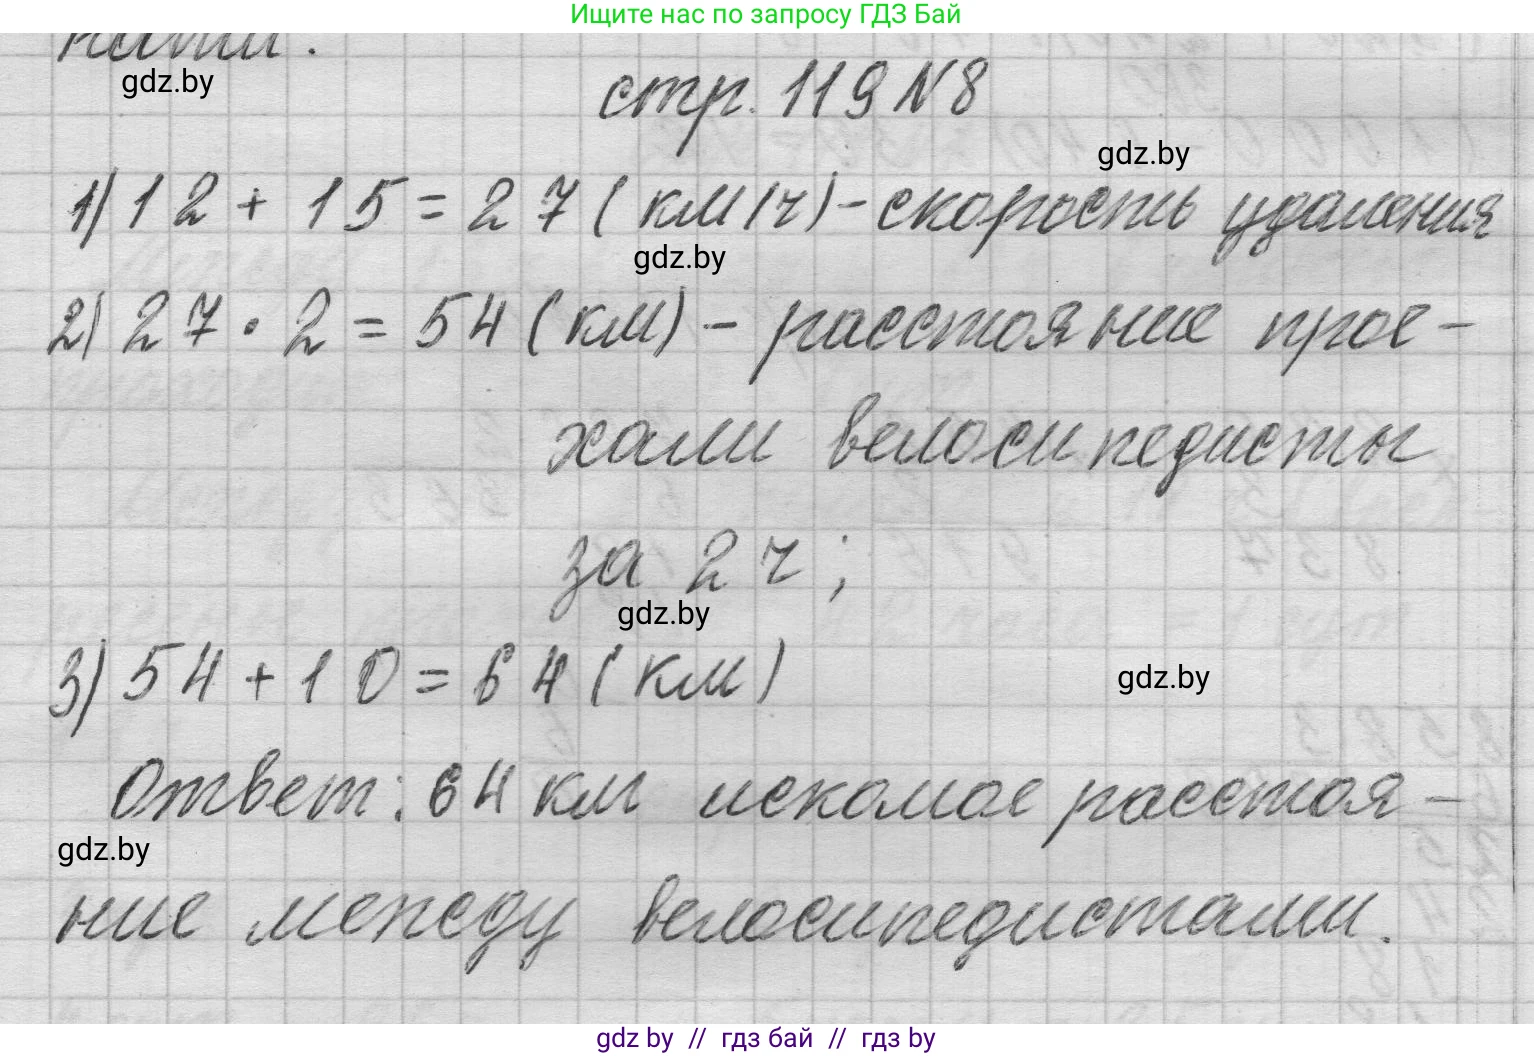 Ищите нас по запросу ГДЗ Бай
gdz.by
стр. 119 N8
gdz.by
1) 12 + 15 = 27 (км/ч) - скорость удаления
gdz.by
2) 27 · 2 = 54 (км) - расстояние прое-
хали велосипедисты
за 2 ч;
gdz.by
3) 54 + 10 = 64 (км)
gdz.by
Ответ: 64 км искомое расстоя-
gdz.by
ние между велосипедистами.
gdz by // гдз бай // гдз by